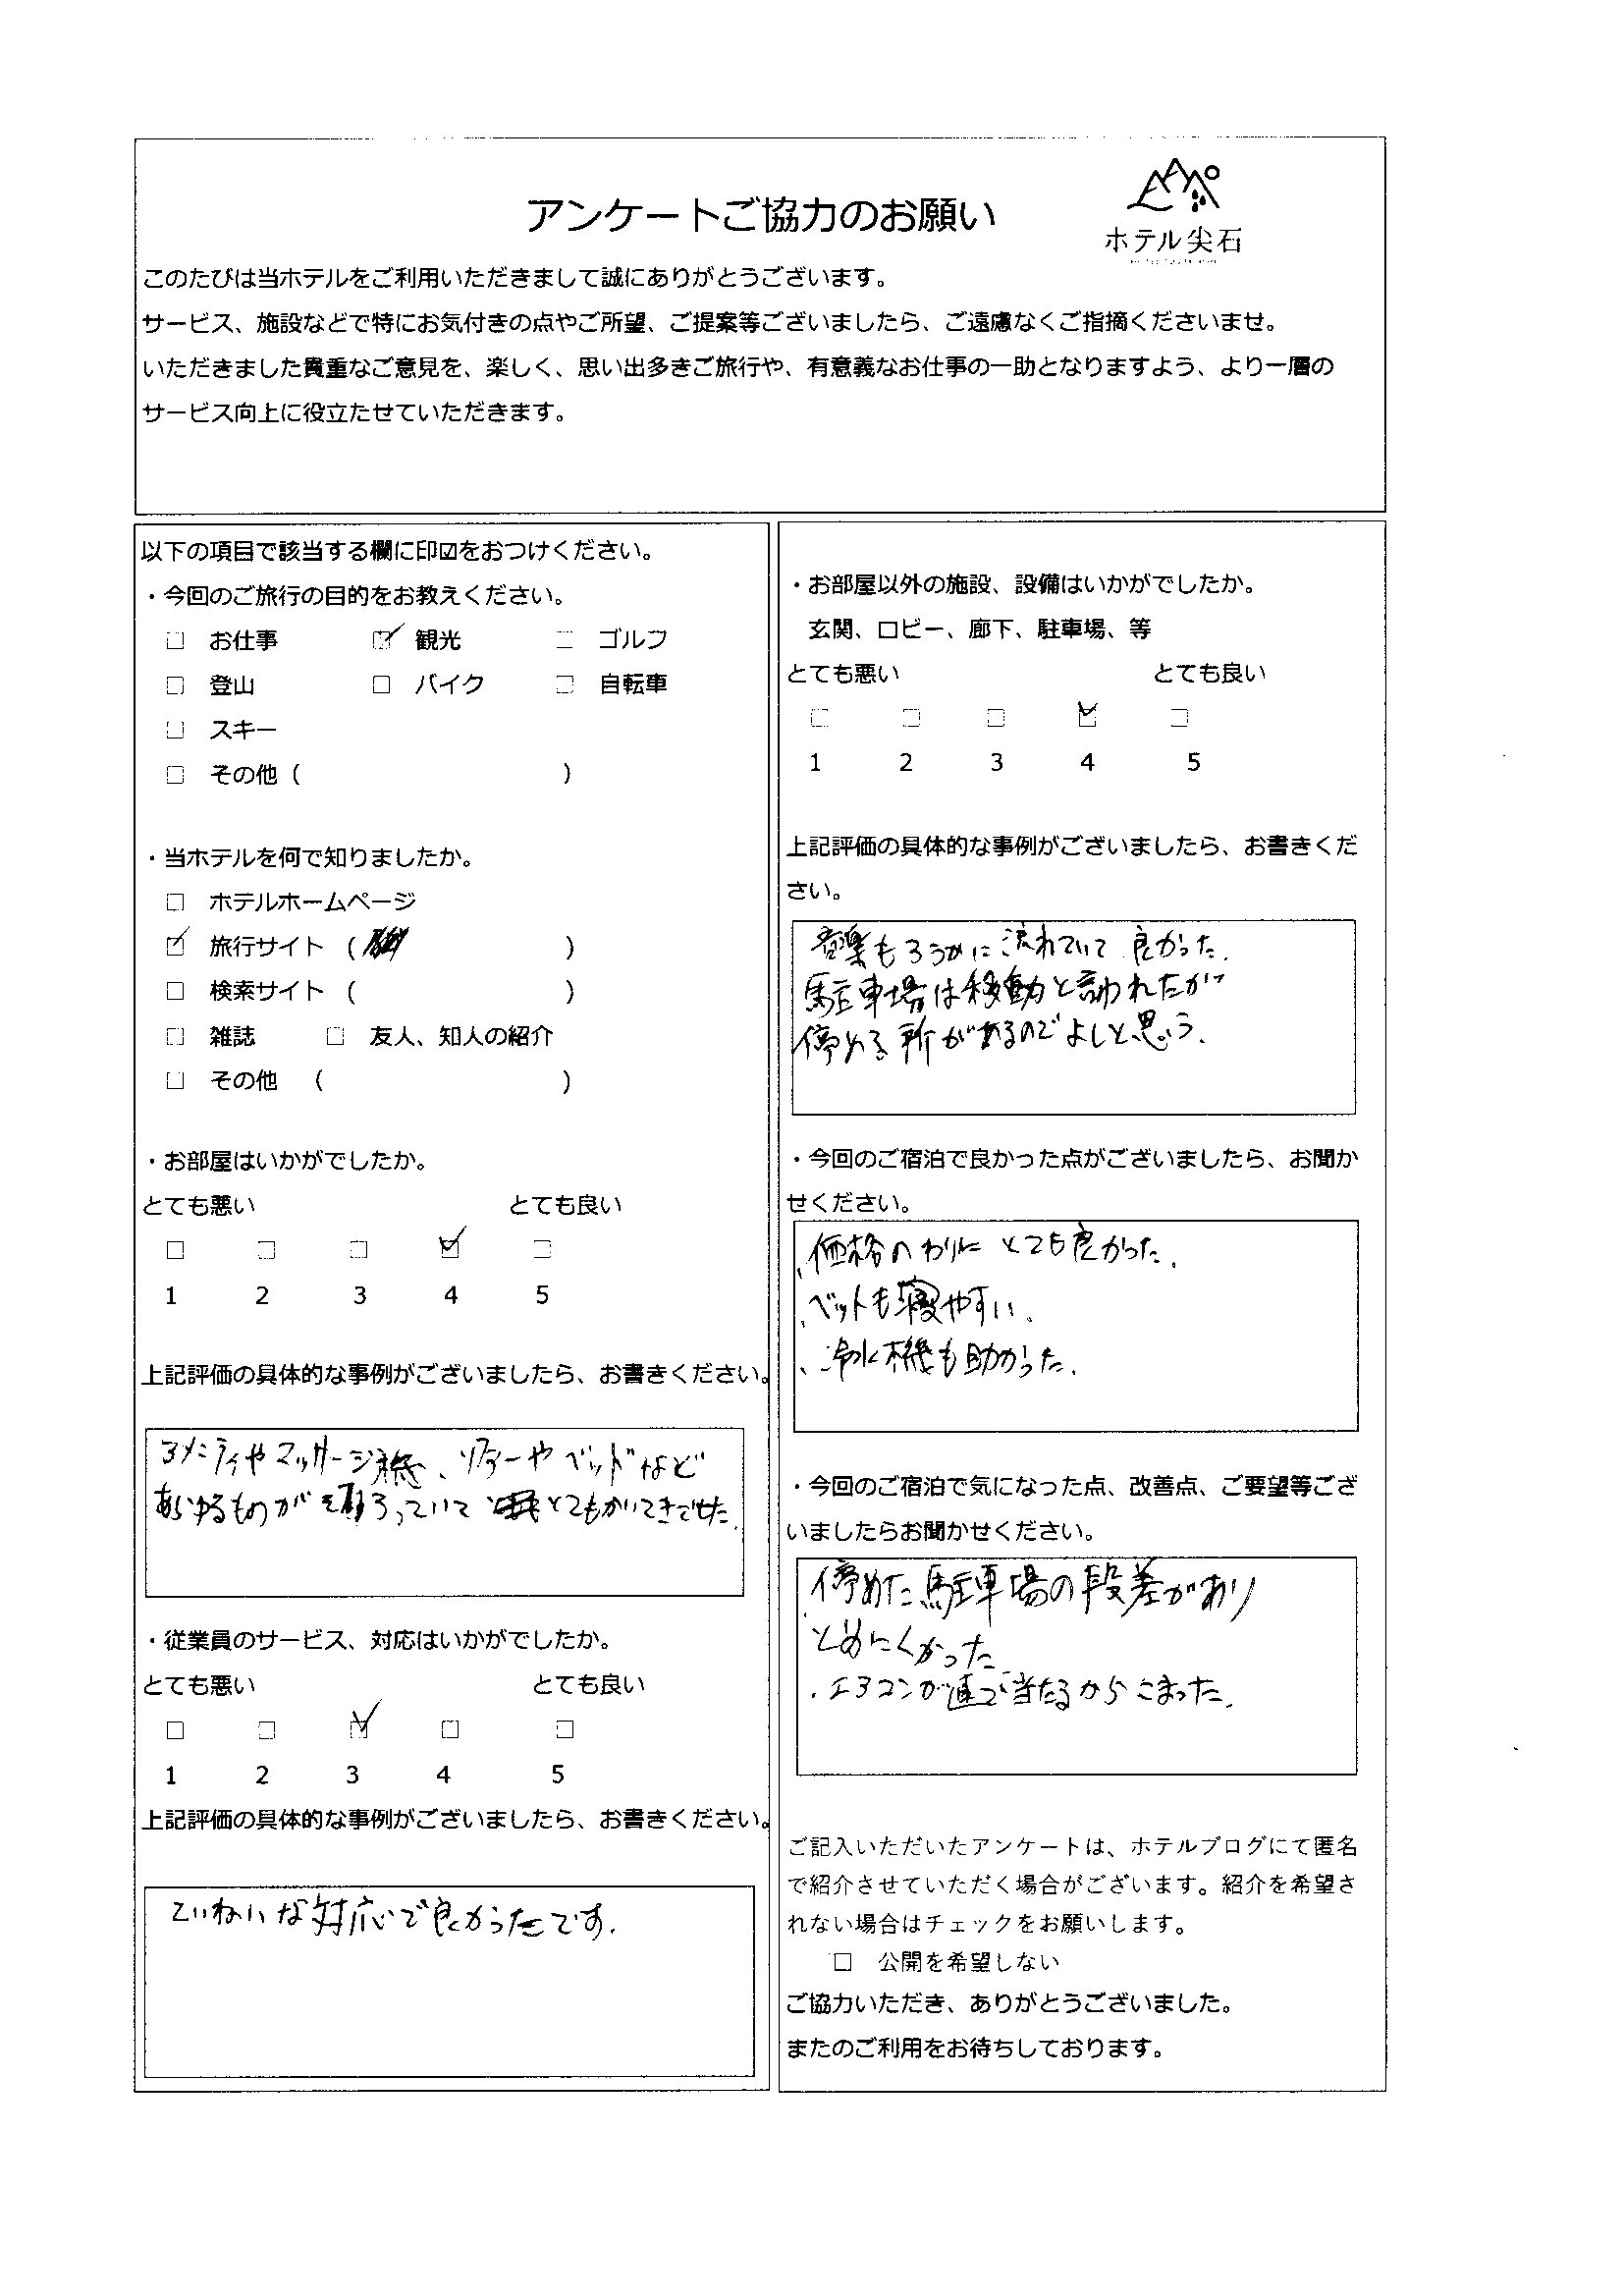 アンケートご協力のお願い
ホテル尖石
このたびは当ホテルをご利用いただきまして誠にありがとうございます。
サービス、施設などで特にお気付きの点やご所望、ご提案等ございましたら、ご遠慮なくご指摘くださいませ。
いただきました貴重なご意見を、楽しく、思い出多きご旅行や、有意義なお仕事の一助となりますよう、より一層の
サービス向上に役立たせていただきます。
以下の項目で該当する欄に印☑をおつけください。
・今回のご旅行の目的をお教えください。
□ お仕事 ☑ 観光 □ ゴルフ
□ 登山 □ バイク □ 自転車
□ スキー
□ その他 ( )
・当ホテルを何で知りましたか。
□ ホテルホームページ
☑ 旅行サイト ( )
□ 検索サイト ( )
□ 雑誌 □ 友人、知人の紹介
□ その他 ( )
・お部屋はいかがでしたか。
とても悪い とても良い
□ □ □ ☑ □
1 2 3 4 5
上記評価の具体的な事例がございましたら、お書きください。
アメニティやマッサージ機、ソファーやベッドなど
あらゆるものがそろっていて とてもかいてきでした。
・従業員のサービス、対応はいかがでしたか。
とても悪い とても良い
□ □ ☑ □ □
1 2 3 4 5
上記評価の具体的な事例がございましたら、お書きください。
ていねいな対応で良かったです.
・お部屋以外の施設、設備はいかがでしたか。
玄関、ロビー、廊下、駐車場、等
とても悪い とても良い
□ □ □ ☑ □
1 2 3 4 5
上記評価の具体的な事例がございましたら、お書きくだ
さい。
音楽もろうかに流れていて良かった.
駐車場は移動と言われたが
停める所があるのでよしと思う.
・今回のご宿泊で良かった点がございましたら、お聞か
せください。
、価格のわりにとても良かった.
、ベットも寝やすい.
、冷水機も助かった.
・今回のご宿泊で気になった点、改善点、ご要望等ござ
いましたらお聞かせください。
・停めた駐車場の段差があり
とめにくかった
・エアコンが直で当たるからこまった.
ご記入いただいたアンケートは、ホテルブログにて匿名
で紹介させていただく場合がございます。紹介を希望さ
れない場合はチェックをお願いします。
□ 公開を希望しない
ご協力いただき、ありがとうございました。
またのご利用をお待ちしております。